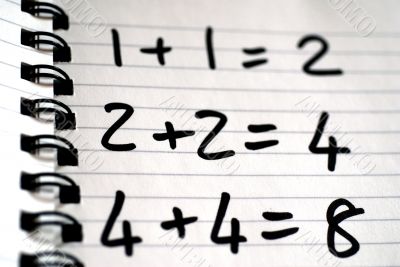 1 + 1 = 2
2 + 2 = 4
4 + 4 = 8